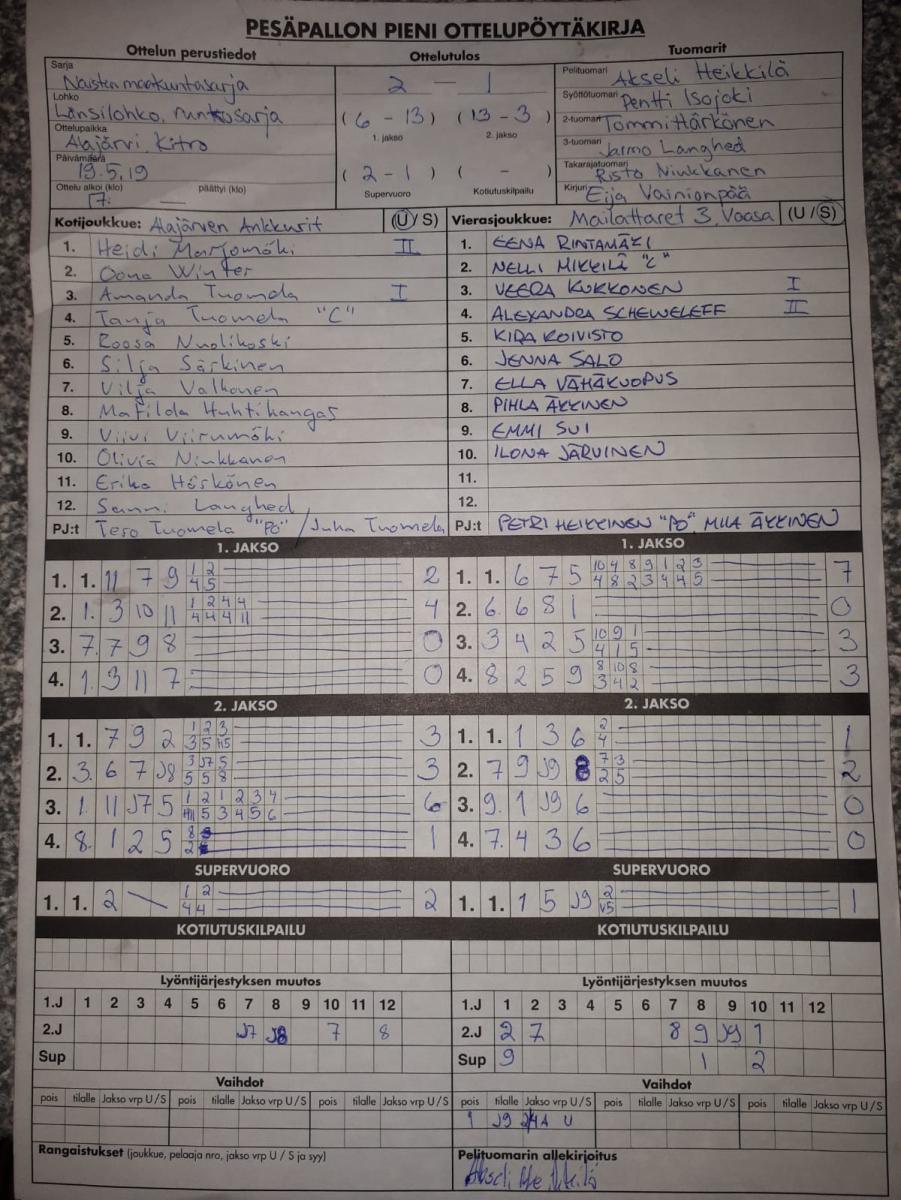 PESÄPALLON PIENI OTTELUPÖYTÄKIRJA
Ottelun perustiedot
Sarja
Naisten maakuntasarja
Lohko
Länsilohko, runkosarja
Ottelupaikka
Alajärvi, Kitro
Päivämäärä
19.5.19
Ottelu alkoi (klo) päättyi (klo)
17.
Ottelutulos
2 - 1
(6 - 13) (13 - 3)
1. jakso 2. jakso
(2 - 1) ( - )
Supervuoro Kotiutuskilpailu
Tuomarit
Pelituomari Akseli Heikkilä
Syöttötuomari Pentti Isojoki
2-tuomari Tommi Härkönen
3-tuomari Jarmo Langhed
Takarajatuomari Risto Niukkanen
Kirjuri Eija Vainionpää
Kotijoukkue: Alajärven Ankkurit (U / S)
1. Heidi Marjomäki II
2. Oona Winter
3. Amanda Tuomela I
4. Tanja Tuomela "C"
5. Roosa Nuolikoski
6. Silja Särkinen
7. Vilja Valkonen
8. Matilda Huhtikangas
9. Viivi Viirumäki
10. Olivia Niukkanen
11. Erika Härkönen
12. Sanni Langhed
PJ:t Tero Tuomela "PO" / Juha Tuomela
Vierasjoukkue: Mailattaret 3, Vaasa (U / S)
1. EENA RINTAMÄKI
2. NELLI MIKKILÄ "C"
3. VEERA KUKKONEN I
4. ALEXANDRA SCHEWELEFF II
5. KIRA KOIVISTO
6. JENNA SALO
7. ELLA VÄHÄKUOPUS
8. PIHLA ÄKKINEN
9. EMMI SUI
10. ILONA JÄRVINEN
11.
12.
PJ:t PETRI HEIKKINEN "PO" MILA ÄKKINEN
1. JAKSO
1. 1. 11 7 9 1 2 2
4 5
2. 1. 3 10 11 1 2 4 4 4
4 4 4 11
3. 7. 7 9 8 0
4. 1. 3 11 7 0
1. JAKSO
1. 1. 6 7 5 10 4 8 9 1 2 3 7
4 8 2 3 4 4 5
2. 6. 6 8 1 0
3. 3 4 2 5 10 9 1 3
4 1 5
4. 8 2 5 9 8 10 8 3
3 4 2
2. JAKSO
1. 1. 7 9 2 1 2 3 3
3 5
2. 3. 6 7 J8 3 J7 5 3
5 5 8
3. 1. 11 J7 5 1 2 1 2 3 4 6
5 3 4 5 6
4. 8. 1 2 5 8 1
2
2. JAKSO
1. 1. 1 3 6 2 1
4
2. 7 9 J9 8 7 3 2
2 5
3. 9. 1 J9 6 0
4. 7. 4 3 6 0
SUPERVUORO
1. 1. 2 1 2 2
4 4
SUPERVUORO
1. 1. 1 5 J9 2 1
V5
KOTIUTUSKILPAILU
KOTIUTUSKILPAILU
Lyöntijärjestyksen muutos
1.J 1 2 3 4 5 6 7 8 9 10 11 12
2.J J7 J8 7 8
Sup
Lyöntijärjestyksen muutos
1.J 1 2 3 4 5 6 7 8 9 10 11 12
2.J 2 7 8 9 J9 1
Sup 9 1 2
Vaihdot
pois tilalle Jakso vrp U / S pois tilalle Jakso vrp U / S pois tilalle Jakso vrp U / S
Vaihdot
pois tilalle Jakso vrp U / S pois tilalle Jakso vrp U / S pois tilalle Jakso vrp U / S
J9 U
Rangaistukset (joukkue, pelaaja nro, jakso vrp U / S ja syy)
Pelituomarin allekirjoitus
Akseli Heikkilä